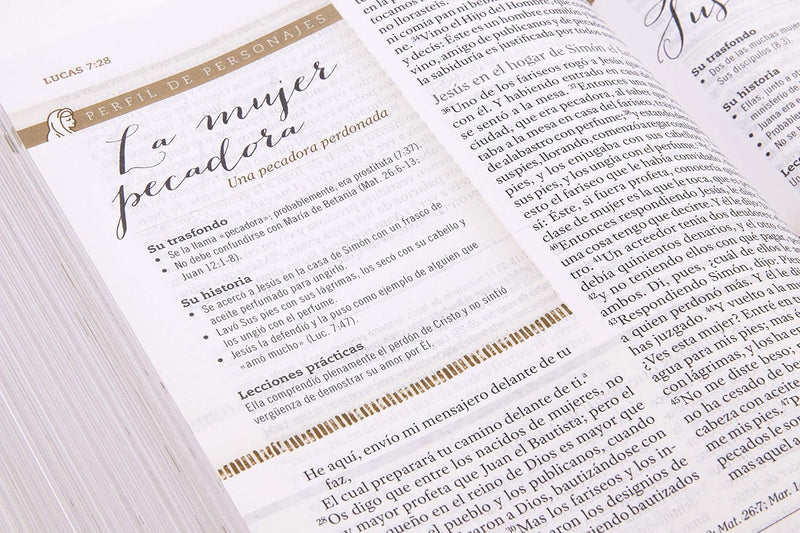 LUCAS 7:28
PERFIL DE PERSONAJES
La mujer
pecadora
Una pecadora perdonada
Su trasfondo
• Se la llama «pecadora»; probablemente, era prostituta (7:37).
• No debe confundirse con María de Betania (Mat. 26-6-13;
Juan 12:1-8).
Su historia
• Se acercó a Jesús en la casa de Simón con un frasco de
aceite perfumado para ungirlo.
• Lavó Sus pies con sus lágrimas, los secó con su cabello y
los ungió con el perfume.
• Jesús la defendió y la puso como ejemplo de alguien que
«amó mucho» (Luc. 7.47).
Lecciones prácticas
Ella comprendió plenamente el perdón de Cristo y no sintió
vergüenza de demostrar su amor por Él.
He aquí, envío mi mensajero delante de tu
faz,
El cual preparará tu camino delante de ti.ª
28Os digo que entre los nacidos de mujeres, no
mayor profeta que Juan el Bautista; pero el
queño en el reino de Dios es mayor que
el pueblo y los publicanos, cuando
aron a Dios, bautizándose con
30Mas los fariseos y los in-
aron los designios de
iendo bautizados
no llorasteis.
ni comía pan ni
ne. 34Vino el Hijo del Hombre,
y decís: Éste es un hombre comil
vino, amigo de publicanos y de p
la sabiduría es justificada por todo
Jesús en el hogar de Simón el
36Uno de los fariseos rogó a Jesús
con él. Y habiendo entrado en casa
se sentó a la mesa. 37Entonces
ciudad, que era pecadora, al saber
taba a la mesa en casa del fariseo,
de alabastro con perfume; 38y estando
sus pies, llorando, comenzó a regar
pies, y los enjugaba con sus cabell
sus pies, y los ungía con el perfume
esto el fariseo que le había convidado
sí: Éste, si fuera profeta, conocería
clase de mujer es la que le toca, que
40Entonces respondiendo Jesús, le di
una cosa tengo que decirte. Y él le di
tro. 41Un acreedor tenía dos deudores
debía quinientos denarios, y el otro
42y no teniendo ellos con qué pagar,
ambos. Di, pues, ¿cuál de ellos le
43Respondiendo Simón, dijo: Pien
a quien perdonó más. Y él le di
has juzgado. 44Y vuelto a la mu
¿Ves esta mujer? Entré en tu
agua para mis pies; mas és
con lágrimas, y los ha en
45No me diste beso; m
no ha cesado de bes
cabeza con aceite
me mis pies. 47P
pecados le so
mas aquel a
Mat. 26:7; Mar. 1
Su trasfondo
• Dos de las muchas muje
• Sus discípulos (8:3).
Su historia
• Ellas, junto a o
ministerio de
• Juana era
• No se